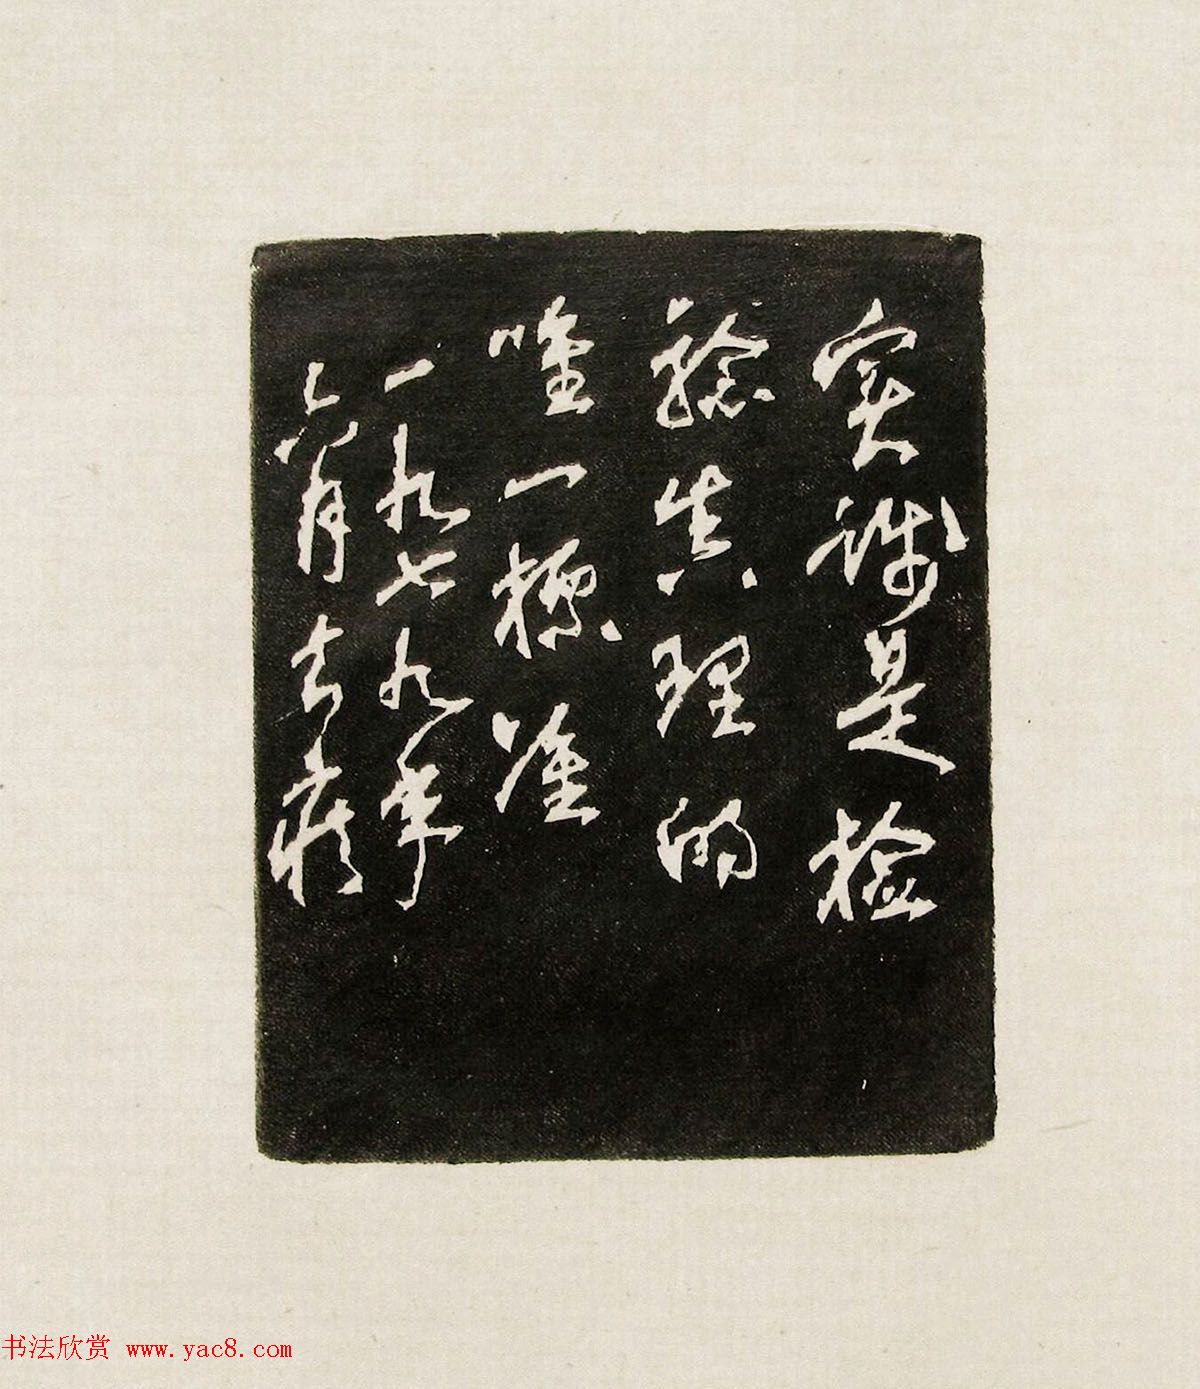 实践是检
验真理的
唯一標准
一九七九年
六月去疾
书法欣赏 www.yac8.com